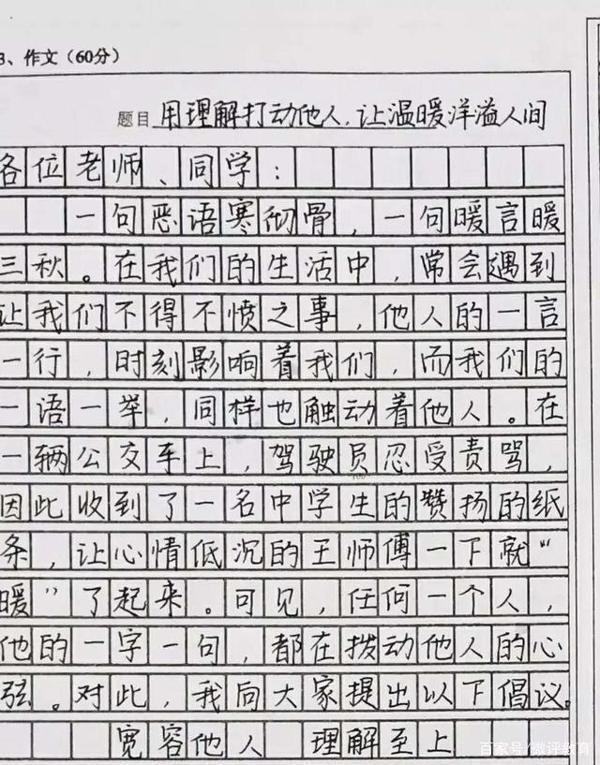 3、作文（60分）
题目 用理解打动他人，让温暖洋溢人间
各位老师、同学：
一句恶语寒彻骨，一句暖言暖
三秋。在我们的生活中，常会遇到
让我们不得不愤之事，他人的一言
一行，时刻影响着我们，而我们的
一语一举，同样也触动着他人。在
一辆公交车上，驾驶员忍受责骂，
因此收到了一名中学生的赞扬的纸
条，让心情低沉的王师傅一下就“
暖”了起来。可见，任何一个人，
他的一字一句，都在拨动他人的心
弦。对此，我向大家提出以下倡议。
宽容他人 理解至上
百家号/微评教育